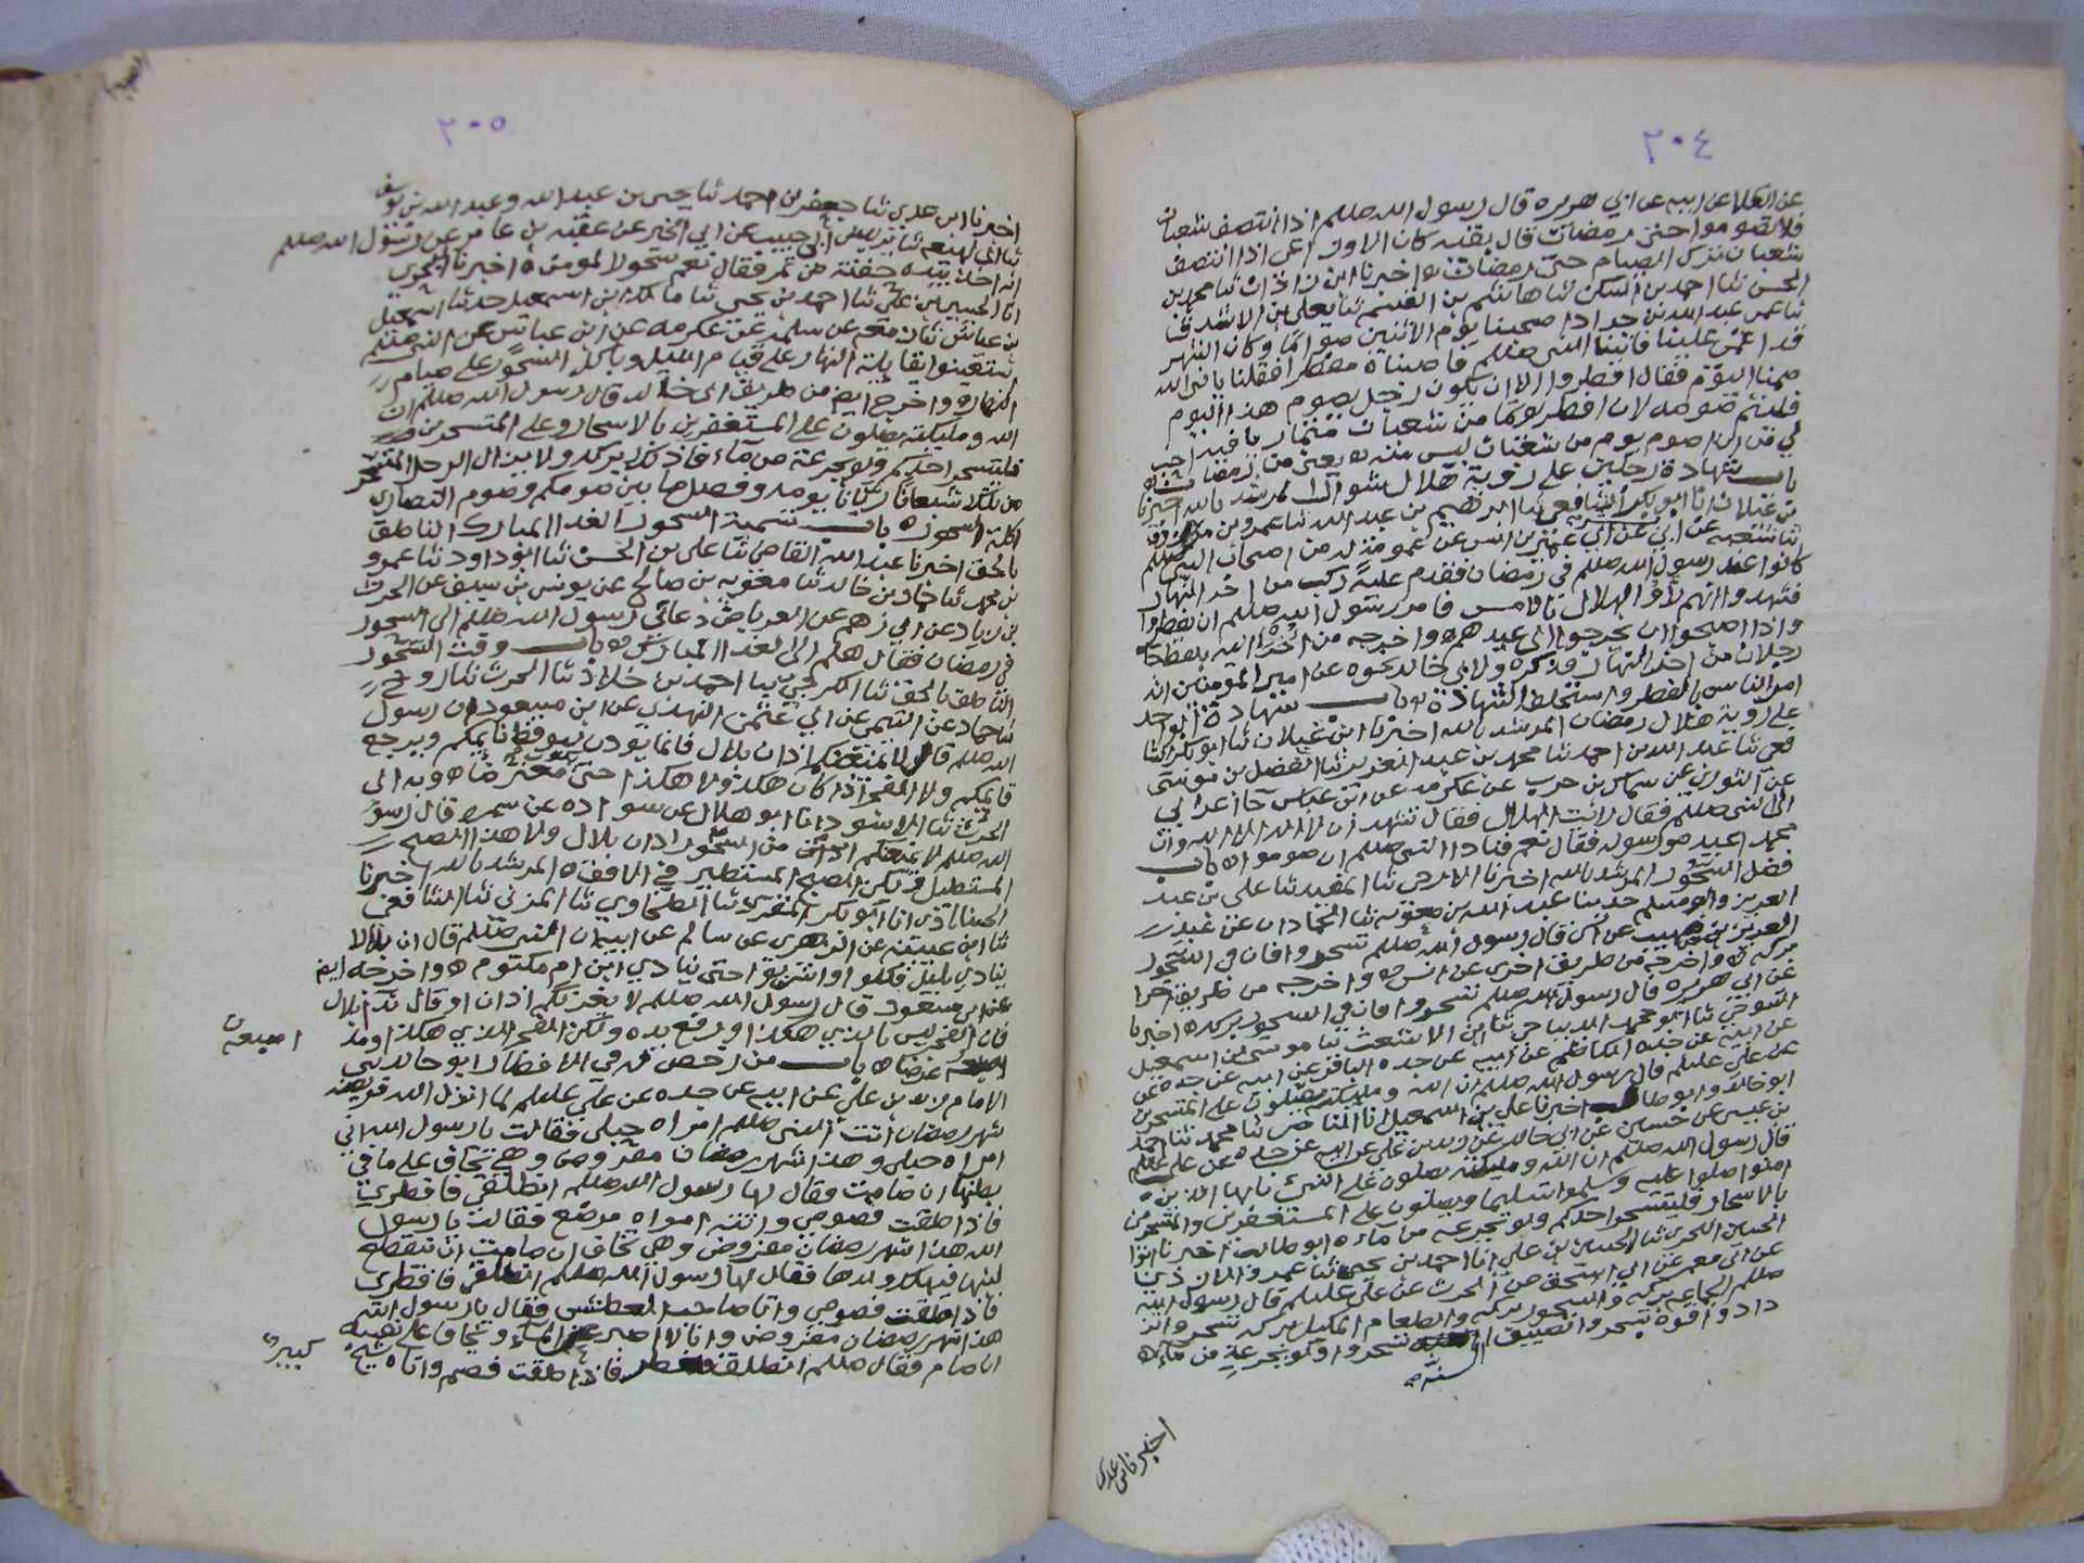 ٢٠٤
عن العلا عن ابيه عن ابي هريره قال رسول الله صللم اذا انتصف شعبان
فلا تصوموا حتى رمضان قال بقيه كان الاوزاعي اذا انتصف
شعبان ترك الصيام حتى رمضان اخبرنا ابن زاذان ثنا محمد بن
الحسن ثنا احمد بن السكن ثنا هاشم بن القسم ثنا يعلى بن الاشدق
ثنا عمي عبد الله بن جراد اصحبنا يوم الاثنين صواما وكان الشهر
قد اغمي علينا فاتينا النبي صللم فاصبناه مفطرا فقلنا يا نبي الله
صمنا اليوم فقال افطروا الا ان يكون رجل يصوم هذا اليوم
فليتم صومه لان افطر يوما من شعبان فيه احب
الي من ان اصوم يوم من شعبان ليس منه يعني من رمضان
باب شهادة رجلين على روية هلال شوال المرشد بالله اخبرنا
بن غيلان انا ابو بكر الشافعي ثنا ابرهيم بن عبد الله ثنا عمرو بن مرزوق
ثنا شعبه عن ابي عن ابي عمير بن انس عن عمومة له من اصحاب النبي صللم
كانوا عند رسول الله صللم في رمضان فقدم عليه ركب من اخر النهار
فشهدوا انهم راوا الهلال بالامس فامر رسول الله صللم ان يفطروا
واذا اصبحوا ان يخرجوا الى عيدهم واخرجه من اخرا انه بلفظ جا
رجلان من اخر النهار فذكره ولابي خالد نحوه عن امير المومنين انه
امر الناس بالفطر باب شهادة الواحد
على روية هلال رمضان المرشد بالله اخبرنا ابن غيلان ثنا ابو بكر الشا
فعي ثنا عبد الله بن احمد ثنا محمد بن عبد العزيز ثنا الفضل بن موسى
عن الثوري عن سماك بن حرب عن عكرمه عن ابن عباس جا اعرابي
الى النبي صللم فقال رايت الهلال فقال تشهد ان لا اله الا الله وان
محمد اعبده ورسوله فقال نعم فنادا النبي صللم ان صوموا باب
فضل السحور المرشد بالله اخبرنا الازجي ثنا المفيد ثنا علي بن عبد
العزيز وابو مسلم حدثنا عبد الله بن معويه ثنا الحمادان عن عبد
العزيز بن صهيب عن انس قال رسول الله صللم تسحروا فان في السحور
بركه واخرجه من طريق اخرى عن انس واخرجه من طريق اخرا
عن ابي هريره قال رسول الله صللم تسحروا فان في السحور بركه اخبرنا
التنوخي ثنا ابو محمد الديباجي ثنا ابن الاشعث ثنا موسى بن اسمعيل
عن ابيه عن جده الكاظم عن ابيه عن جده الباقر عن ابيه عن جده عن
عن علي عليلم قال رسول الله صللم ان الله وملايكته يصلون على المتسحرين
ابو خالد وابو طالب اخبرنا علي بن اسمعيل انا الناصر ثنا محمد ثنا احمد
بن عيسى عن حسين عن ابي خالد عن زيد بن علي عن ابيه عن جده عن علي عليلم
قال رسول الله صللم ان الله وملايكته يصلون على النبي يا ايها الذين
امنوا صلوا عليه وسلموا تسليما ويصلون على المستغفرين والمتسحرين
بالاسحار فليتسحر احدكم ولو بجرعه من ماء ابو طالب اخبرنا ابو
الحسين البحري ثنا الحسين بن علي انا احمد بن يحيى ثنا عمر والان ثنا
عن ابي معمر عن ابي اسحق عن الحرث عن علي عليلم قال رسول الله
صللم الجماعه بركه والسحور بركه والطعام المكيل بركه تسحروا تز
دادوا قوة تسحروا تصيبوا السنه تسحروا ولو بجرعة من ماء
السنه صح
اخبرنا ابن عدي
٢٠٥
اخبرنا ابن عدي ثنا جعفر بن احمد ثنا يحيى بن عبد الله وعبد الله بن يوسف
ثنا ابن لهيعه ثنا يزيد بن ابي حبيب عن ابي الخير عن عقبه بن عامر عن رسول الله صللم
انه اخذ بيده حفنة من تمر فقال نعم سحور المومن اخبرنا البحري
انا الحسين بن علي ثنا احمد بن يحيى ثنا مالك بن اسمعيل حدثنا اسمعيل
بن عياش ثنا زمعه عن سلمه عن عكرمه عن ابن عباس عن النبي صللم
استعينوا بقايلة النهار على قيام الليل وباكل السحور على صيام
النهار واخرج ايضا من طريق ابي خالد قال رسول الله صللم ان
الله وملايكته يصلون على المستغفرين بالاسحار وعلى المتسحرين
فليتسحر احدكم ولو بجرعة من ماء فان ذلك بركه ولا يزال الرجل المتسحر
من تلك شبعانا ريانا يومه وفصل ما بين صومكم وصوم النصارى
اكلة السحور باب تسمية السحور الغدا المبارك الناطق
بالحق اخبرنا عبد الله القاضي ثنا علي بن الحسن ثنا ابو داود ثنا عمرو
بن محمد ثنا حماد بن خالد ثنا معويه بن صالح عن يونس بن سيف عن الحرث
بن زياد عن ابي رهم عن العرباض دعاني رسول الله صللم الى السحور
في رمضان فقال هلم الى الغدا المبارك باب وقت السحور
الناطق بالحق ثنا الكرجي ثنا احمد بن خلاد ثنا الحرث ثنا روح
ثنا حماد عن التيمي عن ابي عثمن النهدي عن ابن مسعود ان رسول
الله صللم قال لا يمنعنكم اذان بلال فانما يوذن ليوقظ نايمكم ويرجع
قايمكم ولا الفجر اذا كان هكذا ولا هكذا حتى معترضا وبه الى
الحرث ثنا الاسود انا ابو هلال عن سواده عن سمره قال رسول
الله صللم لا يمنعنكم من السحور اذان بلال ولا هذا الصبح
المستطيل ولكن الصبح المستطير في الافق المرشد بالله اخبرنا
الحسناباذي انا ابو بكر المقرئ ثنا الطحاوي ثنا المزني ثنا الشافعي
ثنا ابن عيينه عن الزهري عن سالم عن ابيه ان النبي صللم قال ان بلالا
ينادي بليل فكلوا واشربوا حتى ينادي ابن ام مكتوم واخرجه ايضا
عن ابن مسعود قال رسول الله صللم لا يغرنكم اذان او قال ندا بلال
فان الفجر ليس بالذي هكذا ورفع يده ولكن الفجر الذي هكذا ومد
اصبعه عرضا باب من رخص له في الافطار ابو خالد ثني
اصبعيه
الامام زيد بن علي عن ابيه عن جده عن علي عليلم لما انزل الله فريضة
شهر رمضان اتت النبي صللم امراه حبلى فقالت يا رسول الله اني
امراه حبلى وهذا شهر رمضان مفروض وهي تخاف على ما في
بطنها ان صامت فقال لها رسول الله صللم انطلقي فافطري
فاذا طقت فصومي واتته امراه مرضع فقالت يا رسول
الله هذا شهر رمضان مفروض وهي تخاف ان صامت ان ينقطع
لبنها فيهلك ولدها فقال لها رسول الله صللم انطلقي فافطري
فاذا طقت فصومي واتا صاحب العطش فقال يا رسول الله
هذا شهر رمضان مفروض وانا لا اصبر عن الماء ويخاف على نفسه
ان صام فقال صللم انطلق فافطر فاذا طقت فصم واتاه شيخ
كبير